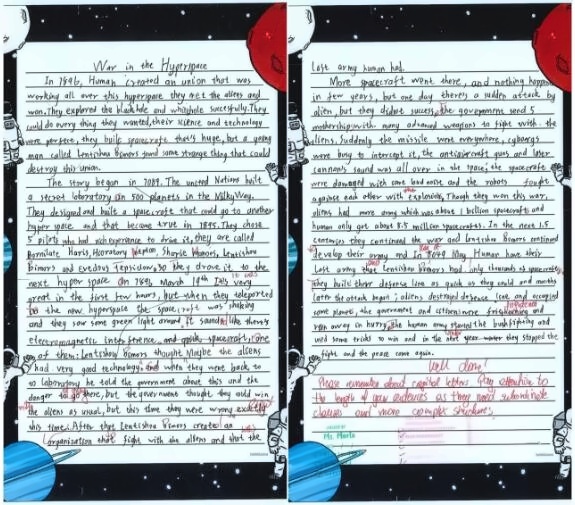 War in the Hyperspace
In 7896, Human created an union that was
working all over this hyperspace they met the aliens and
won. They explored the blackhole and whitehole succesfully. They
could do every thing they wanted, their science and technology
were perfect, they built spacecraft that's huge, but a young
man called Lentishou Bimors found some strange thing that could
destroy this union.
The story began in 7089. The united Nations built
a secret laboratory on 500 planets in the MilkyWay.
They designed and built a spacecraft that could go to another
hyper space and that became true in 7895. They chose
5 pilots who had rich experience to drive it, they are called
Harris, Lentishou
Bimors and so they drove it to the
next hyper space on 7896 March 19th It's very
great in the first few hours, but when they teleported
to the new hyperspace the spacecraft was shaking
and they saw some green light around, it sounded like there's
electromagnetic interference, and spacecraft, one
of them: Lentishou bimors thought Maybe the aliens
had very good technology. and when they went back to
laboratory he told the government about this and the
danger to go there, but the government thought they could win
the aliens as usual, but this time they were wrong exactly
this time. After that Lentishou Bimors created an
organisation that fight with the aliens and that the
Lost army human had.
More spacecraft went there, and nothing happen
in few years, but one day there's a sudden attack by
alien, but they didnt success, the government send 5
motherships with many advanced weapons to fight with the
aliens. Suddenly the missile were everywhere, cyborgs
were busy to intercept it, the antiaircraft guns and laser
cannons sound was all over in the space, the spacecraft
were damaged with some bad noise and the robots fought
against each other with explosion. Though they won this war,
aliens had more army which was about 1 billion spacecrafts and
human only got about 8.5 million spacecrafts. In the next 1.5
centuries they continued the war and Lentishou Bimors continued
develop their army and in 8049 May Human have their
Lost army that Lentishou Bimors had only thousands of spacecrafts,
they build their defense line as quick as they could and months
later the attack began, aliens destroied defense line and occupied
some planets, the government and citizens were frightening and
run away in hurry, the human army started the bushfighting and
used some tricks to win and in the next year they stopped the
fight and the peace come again.
Well done!
Please remember about capital letters. Pay attention to
the length of your sentences as they need subordinate
clauses and more complex structures.
Ms. Marta